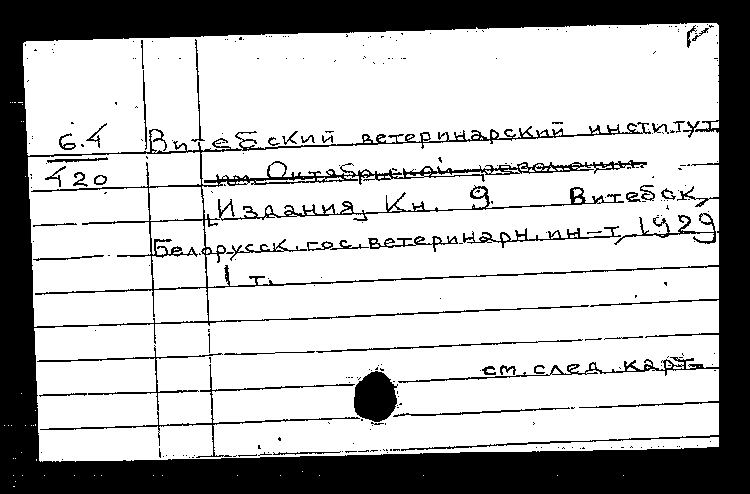 6.4 Витебский ветеринарский институт
420 им Октябрьской революции
[Издания] Кн. 9 Витебск,
Белорусск. гос. ветеринарн. ин-т, 1929
1 т.
см. след. карт.